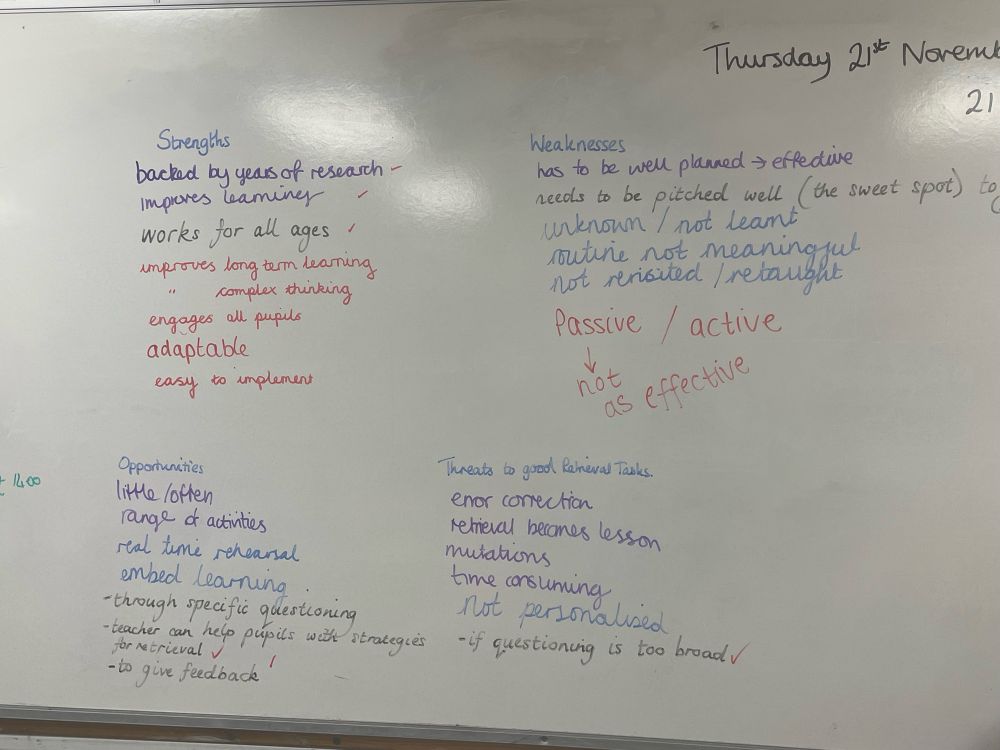 Thursday 21st Novemb
21
Strengths
backed by years of research -
improves learning ✓
works for all ages ✓
improves long term learning
" complex thinking
engages all pupils
adaptable
easy to implement
Weaknesses
has to be well planned → effective
needs to be pitched well (the sweet spot) to
unknown / not learnt
routine not meaningful
not revisited / retaught
Passive / active
↓
not
as effective
1400
Opportunities
little/often
range of activities
real time rehearsal
embed learning
- through specific questioning
- teacher can help pupils with strategies
for retrieval ✓
- to give feedback ✓
Threats to good Retrieval Tasks.
error correction
retrieval becomes lesson
mutations
time consuming
Not personalised
- if questioning is too broad ✓